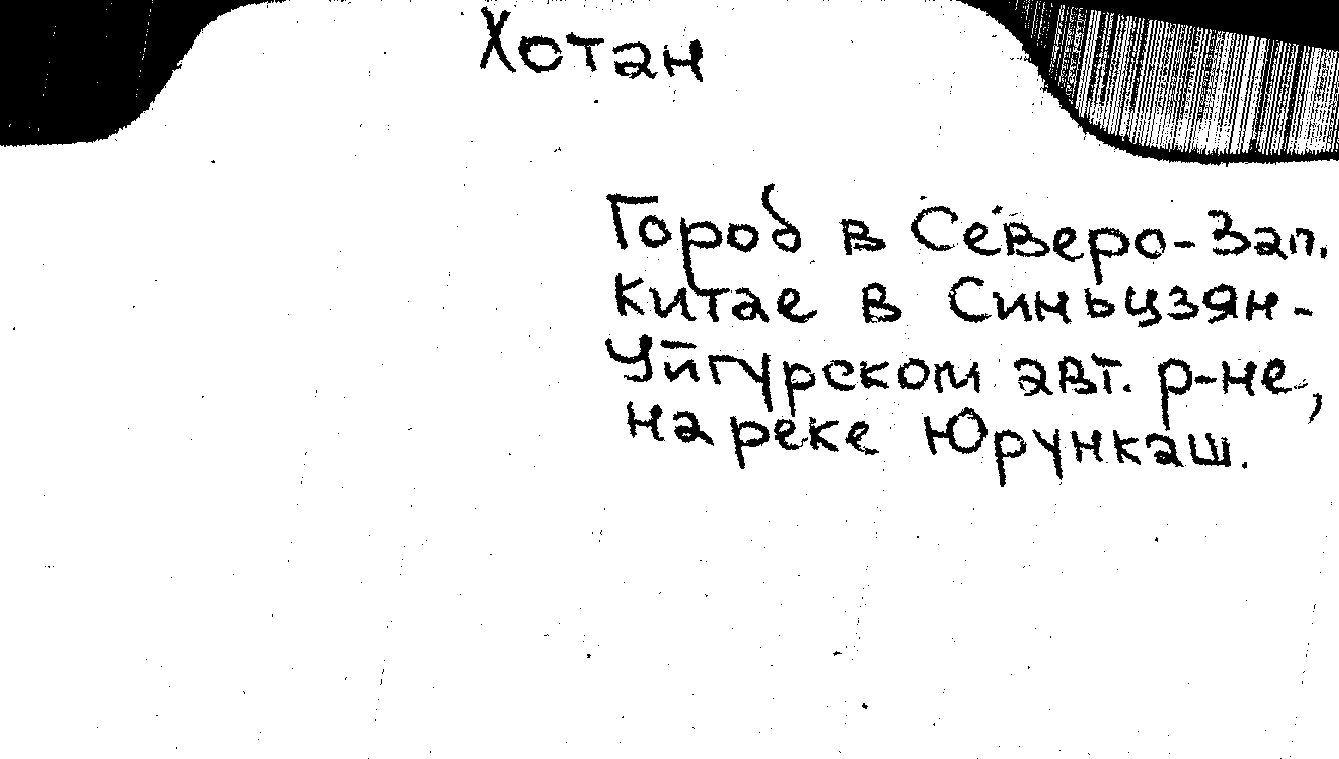 Хотан
Город в Северо-Зап.
Китае в Синьцзян-
Уйгурском авт. р-не,
на реке Юрункаш.